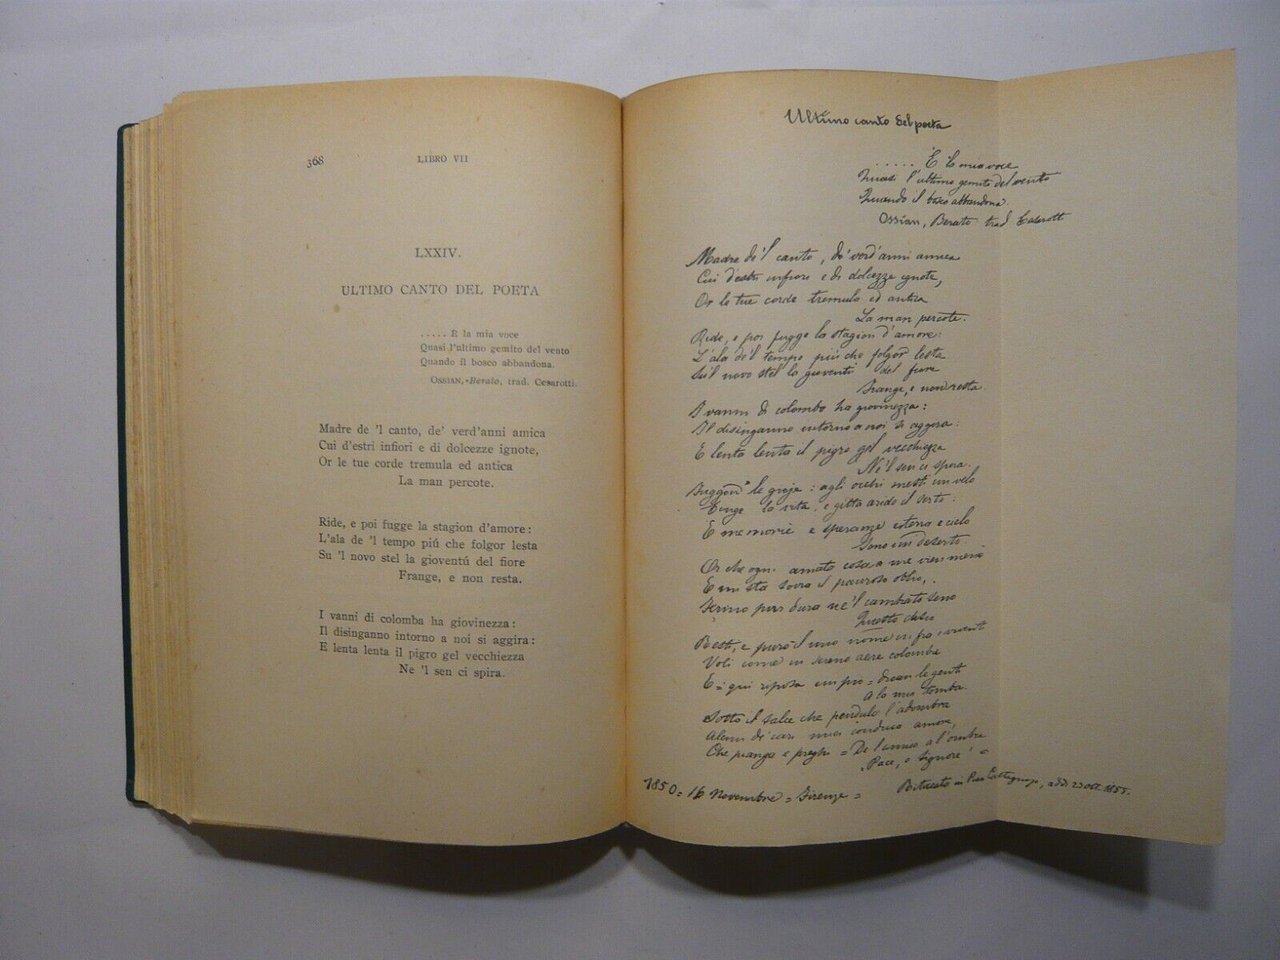 368
LIBRO VII
LXXIV.
ULTIMO CANTO DEL POETA
. . . . . E la mia voce
Quasi l'ultimo gemito del vento
Quando il bosco abbandona.
OSSIAN, Berato, trad. Cesarotti.
Madre de 'l canto, de' verd'anni amica
Cui d'estri infiori e di dolcezze ignote,
Or le tue corde tremula ed antica
La man percote.
Ride, e poi fugge la stagion d'amore:
L'ala de 'l tempo piú che folgor lesta
Su 'l novo stel la gioventú del fiore
Frange, e non resta.
I vanni di colomba ha giovinezza:
Il disinganno intorno a noi si aggira:
E lenta lenta il pigro gel vecchiezza
Ne 'l sen ci spira.
Ultimo canto del poeta
. . . . . E la mia voce
Quasi l'ultimo gemito del vento
Quando il bosco abbandona.
Ossian, Berato trad Cesarott
Madre de 'l canto, de' verd'anni amica
Cui d'estri infiori e di dolcezze ignote,
Or le tue corde tremula ed antica
La man percote.
Ride, e poi fugge la stagion d'amore:
L'ala de 'l tempo piú che folgor lesta
Su'l novo stel la gioventú del fiore
Frange, e non resta.
I vanni di colombo ha giovinezza:
Il disinganno intorno a noi si aggira:
E lenta lenta il pigro gel vecchiezza
Ne 'l sen ci spira.
Fuggon le gioje: agli occhi mesti un velo
Cinge la vita, e gitta arido il serto:
E memorie e speranze e terra e cielo
Sono un deserto.
Or che ogni amata cosa a me vien meno
E mi sta sovra il pauroso oblio,
Ferino pur dura ne 'l cambiato seno
Questo desio
Poeta, e puro il mio nome in fra i viventi
Voli come in sereno aere colomba
E = qui riposa un pio = dican le genti
A la mia tomba.
Sotto il salce che pendulo l'adombra
Alcun de' cari miei conduca amore,
Che pianga e preghi = De l'amico a l'ombra
Pace, o Signore! =
1850 = 16 Novembre = Firenze =
Ritoccato in Pian Castagnajo, addì 23 ott. 1855.